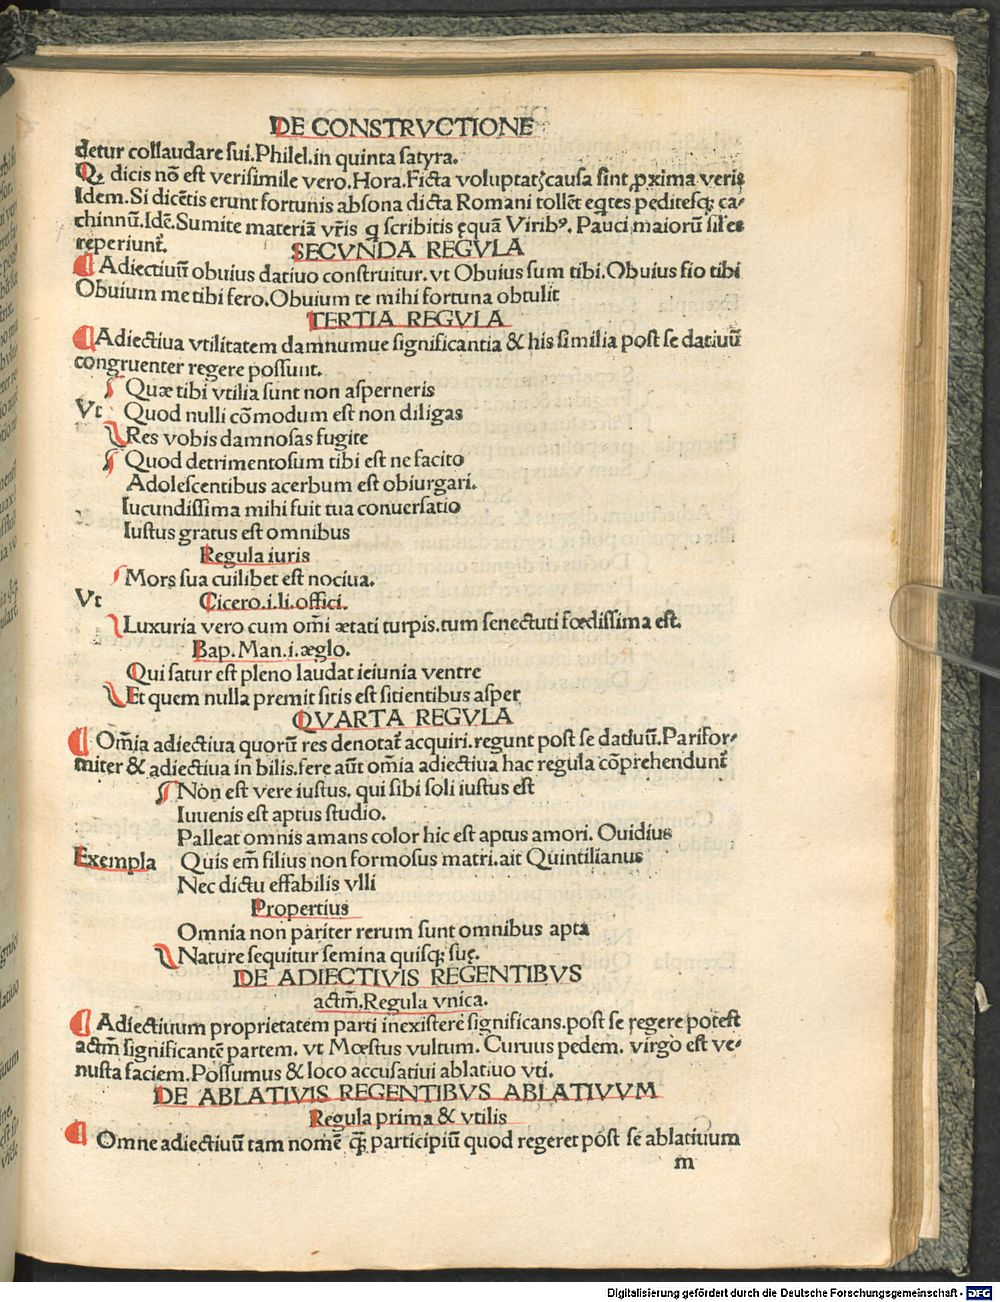 DE CONSTRVCTIONE
detur collaudare sui.Philel.in quinta satyra.
Qꝫ dicis nõ est verisimile vero.Hora.Ficta voluptatꝭ causa sint ꝓxima veris
Idem.Si dicẽtis erunt fortunis absona dicta Romani tollẽt eqtes peditesqꝫ ca⸗
chinnũ.Idẽ.Sumite materiã vr̃is q scribitis ęquã Viribꝰ. Pauci maiorũ sil̃es
reperiunt̃.
SECVNDA REGVLA
Adiectiuũ obuius datiuo construitur.vt Obuius sum tibi.Obuius fio tibi
Obuium me tibi fero.Obuium te mihi fortuna obtulit
TERTIA REGVLA
Adiectiua vtilitatem damnumue significantia & his similia post se datiuũ
congruenter regere possunt.
Quæ tibi vtilia sunt non asperneris
Vt Quod nulli cõmodum est non diligas
Res vobis damnosas fugite
Quod detrimentosum tibi est ne facito
Adolescentibus acerbum est obiurgari.
Iucundissima mihi fuit tua conuersatio
Iustus gratus est omnibus
Regula iuris
Mors sua cuilibet est nociua.
Vt Cicero.i.li.offici.
Luxuria vero cum om̃i ætati turpis.tum senectuti fœdissima est.
Bap.Man.i.æglo.
Qui satur est pleno laudat ieiunia ventre
Et quem nulla premit sitis est sitientibus asper
QVARTA REGVLA
Om̃ia adiectiua quorũ res denotat̃ acquiri.regunt post se datiuũ.Parifor⸗
miter & adiectiua in bilis.fere aũt om̃ia adiectiua hac regula cõprehendunt̃
Non est vere iustus. qui sibi soli iustus est
Iuuenis est aptus studio.
Palleat omnis amans color hic est aptus amori. Ouidius
Exempla Quis em̃ filius non formosus matri.ait Quintilianus
Nec dictu effabilis vlli
Propertius
Omnia non pariter rerum sunt omnibus apta
Nature sequitur semina quisqꝫ suę.
DE ADIECTIVIS REGENTIBVS
actm̃.Regula vnica.
Adiectiuum proprietatem parti inexistere significans.post se regere potest
actm̃ significantẽ partem. vt Mœstus vultum. Curuus pedem. virgo est ve⸗
nusta faciem.Possumus & loco accusatiui ablatiuo vti.
DE ABLATIVIS REGENTIBVS ABLATIVVM
Regula prima & vtilis
Omne adiectiuũ tam nomẽ qꝫ̃ participiũ quod regeret post se ablatiuum
m
Digitalisierung gefördert durch die Deutsche Forschungsgemeinschaft - DFG